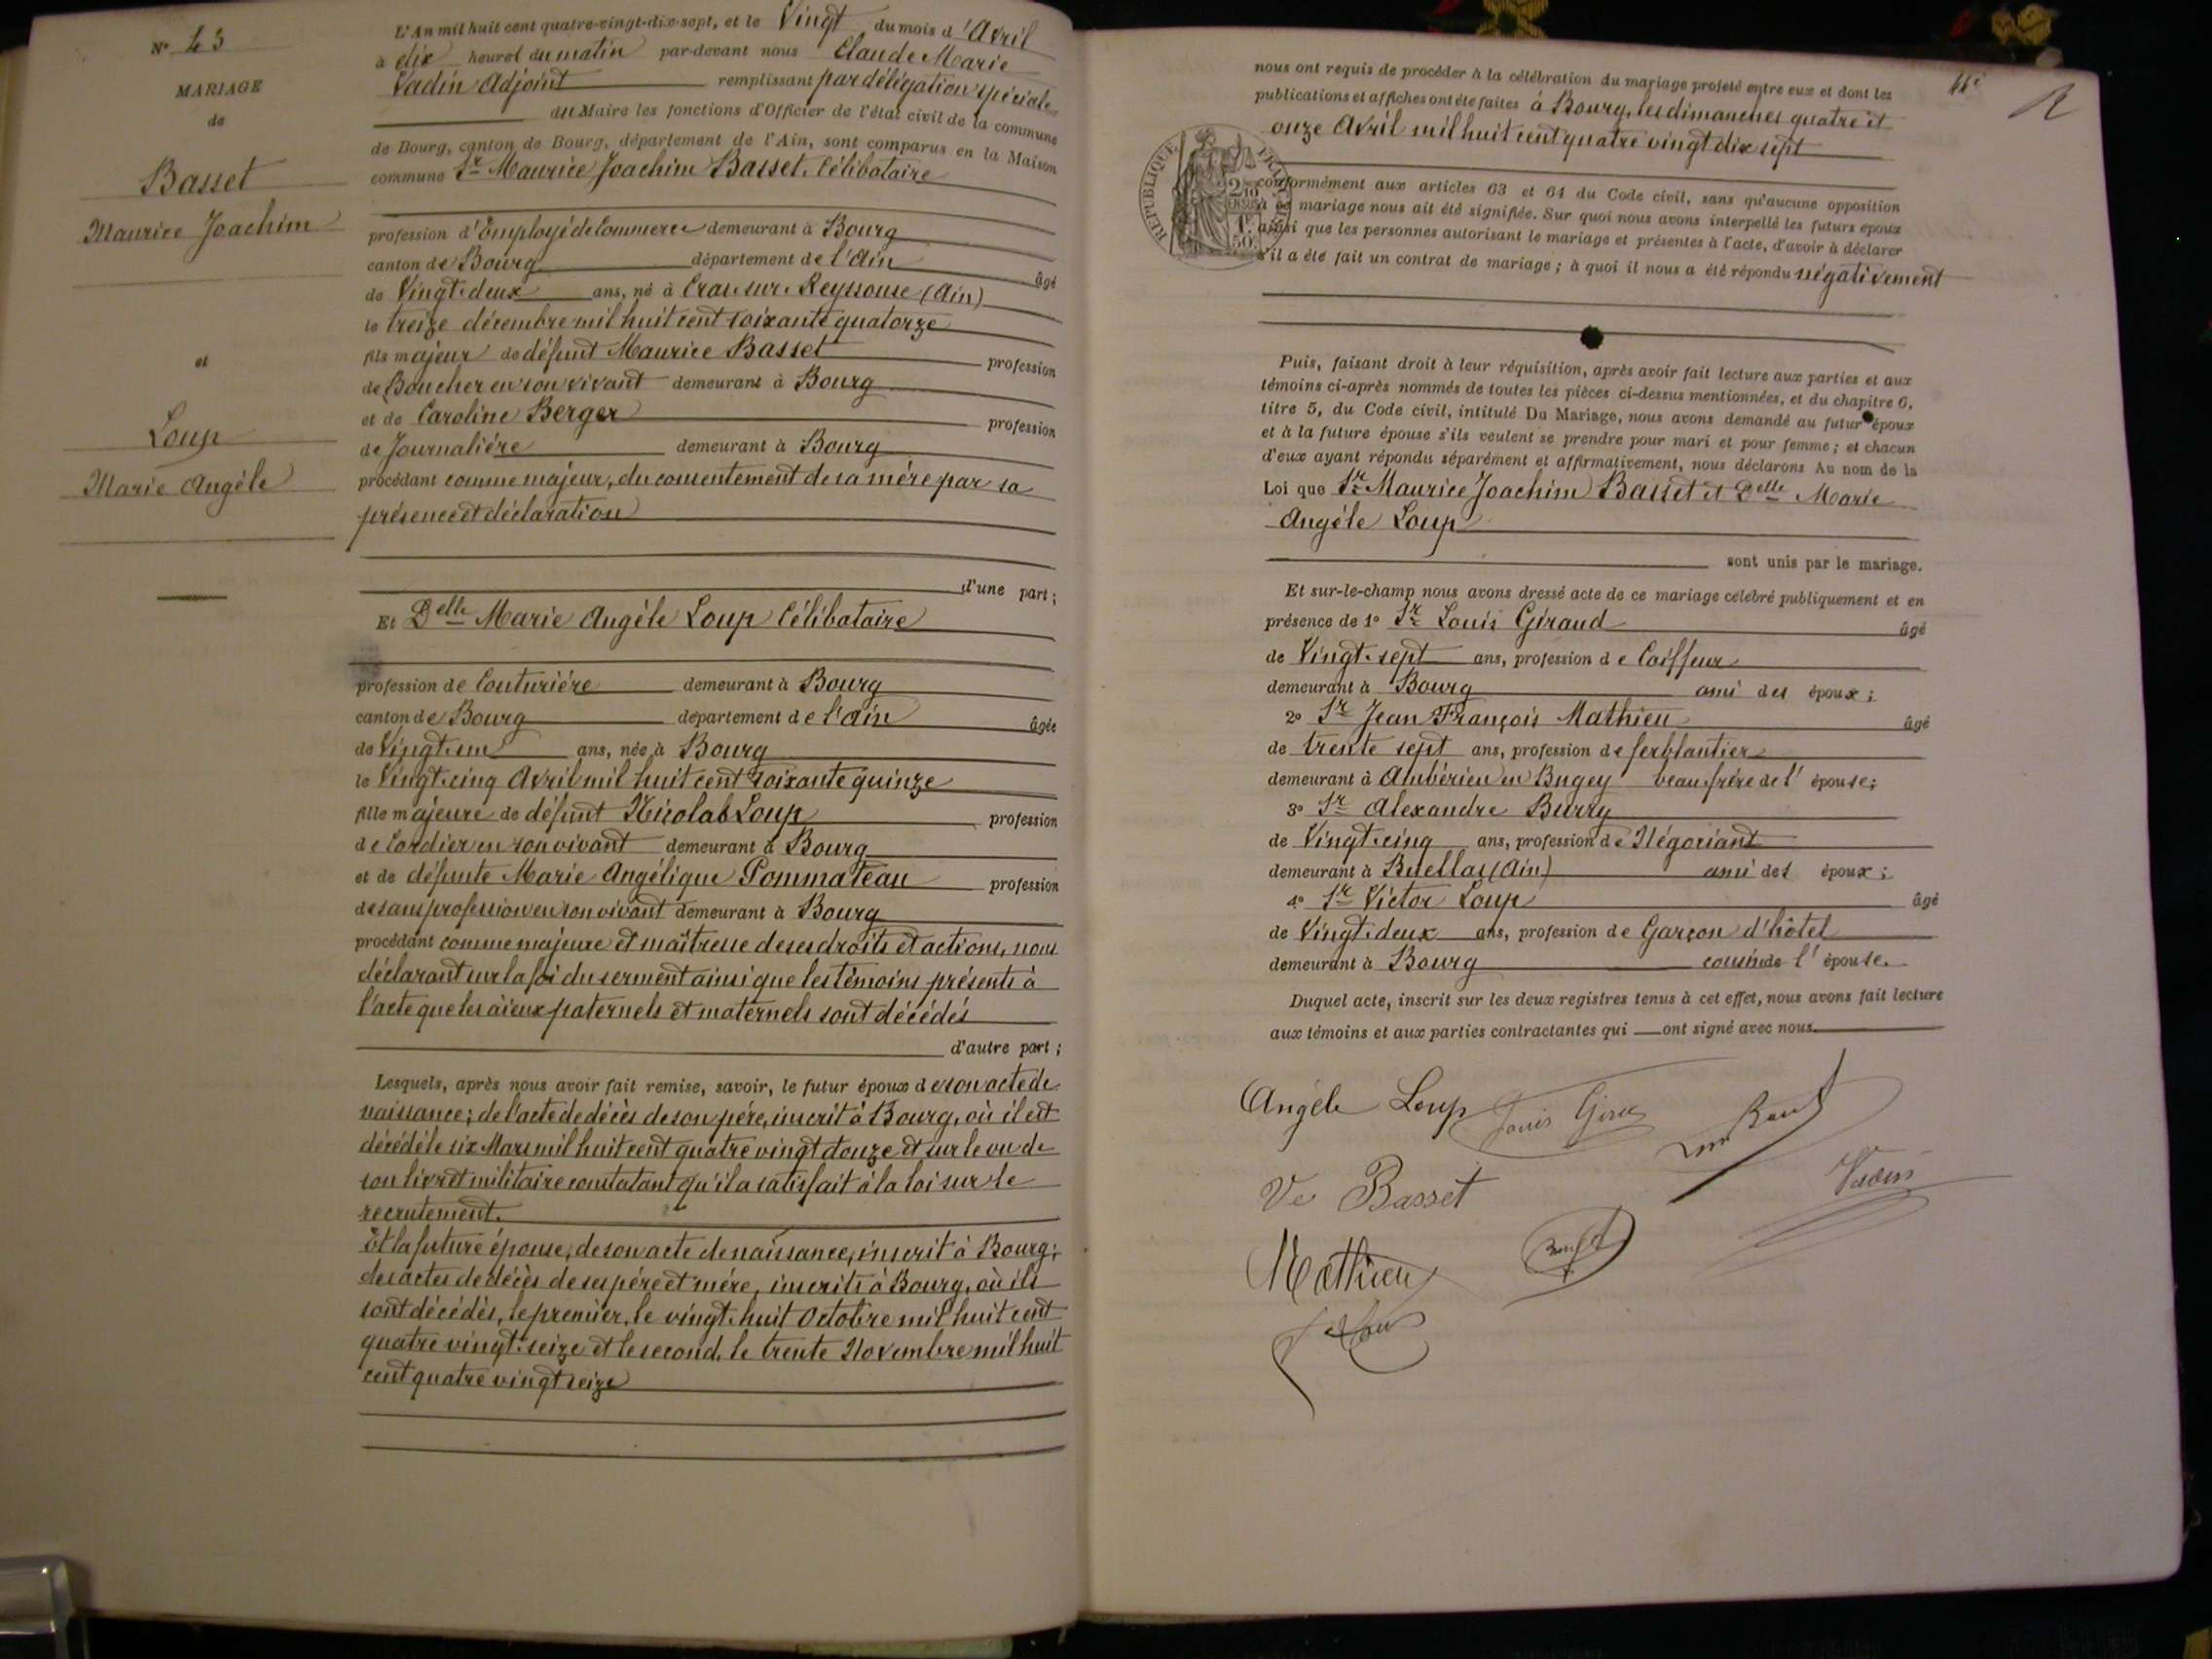 N° 43
MARIAGE
de
Basset
Maurice Joachim
et
Loup
Marie Angèle
L'An mil huit cent quatre-vingt-dix-sept, et le Vingt du mois d'Avril
à dix heures du matin par-devant nous Claude Marie
Vadin Adjoint remplissant par délégation spéciale
du Maire les fonctions d'Officier de l'état civil de la commune
de Bourg, canton de Bourg, département de l'Ain, sont comparus en la Maison
commune Sr Maurice Joachim Basset, Célibataire
profession d'Employé de Commerce demeurant à Bourg
canton de Bourg département de l'Ain âgé
de Vingt-deux ans, né à Cras-sur-Reyssouse (Ain)
le treize décembre mil huit cent soixante quatorze
fils majeur de défunt Maurice Basset profession
de Boucher en son vivant demeurant à Bourg
et de Caroline Berger profession
de Journalière demeurant à Bourg
procédant comme majeur, du consentement de sa mère par sa
présence et déclaration
d'une part;
Et Delle Marie Angèle Loup Célibataire
profession de Couturière demeurant à Bourg
canton de Bourg département de l'Ain âgée
de Vingt-un ans, née à Bourg
le Vingt-cinq Avril mil huit cent soixante quinze
fille majeure de défunt Nicolas Loup profession
de Cordier en son vivant demeurant à Bourg
et de défunte Marie Angélique Pommateau profession
de sans profession en son vivant demeurant à Bourg
procédant comme majeure et maîtresse de ses droits et actions, nous
déclarant sur la foi du serment ainsi que les témoins présents à
l'acte que les aïeux paternels et maternels sont décédés
d'autre part;
Lesquels, après nous avoir fait remise, savoir, le futur époux de son acte de
naissance; de l'acte de décès de son père, inscrit à Bourg, où il est
décédé le six Mars mil huit cent quatre vingt douze et sur le vu de
son livret militaire constatant qu'il a satisfait à la loi sur le
recrutement.
Et la future épouse, de son acte de naissance, inscrit à Bourg;
des actes de décès de ses père et mère, inscrits à Bourg, où ils
sont décédés, le premier, le vingt-huit Octobre mil huit cent
quatre vingt-seize et le second, le trente Novembre mil huit
cent quatre vingt seize
nous ont requis de procéder à la célébration du mariage projeté entre eux et dont les
publications et affiches ont été faites à Bourg, les dimanches quatre et
onze Avril mil huit cent quatre vingt dix sept
RÉPUBLIQUE FRANÇAISE
conformément aux articles 63 et 64 du Code civil, sans qu'aucune opposition
à ce mariage nous ait été signifiée. Sur quoi nous avons interpellé les futurs époux
ainsi que les personnes autorisant le mariage et présentes à l'acte, d'avoir à déclarer
s'il a été fait un contrat de mariage; à quoi il nous a été répondu négativement
Puis, faisant droit à leur réquisition, après avoir fait lecture aux parties et aux
témoins ci-après nommés de toutes les pièces ci-dessus mentionnées, et du chapitre 6,
titre 5, du Code civil, intitulé Du Mariage, nous avons demandé au futur époux
et à la future épouse s'ils veulent se prendre pour mari et pour femme; et chacun
d'eux ayant répondu séparément et affirmativement, nous déclarons Au nom de la
Loi que Sr Maurice Joachim Basset et Delle Marie
Angèle Loup
sont unis par le mariage.
Et sur-le-champ nous avons dressé acte de ce mariage célébré publiquement et en
présence de 1° Sr Louis Giraud âgé
de Vingt-sept ans, profession de Coiffeur
demeurant à Bourg ami des époux;
2° Sr Jean François Mathieu âgé
de trente sept ans, profession de ferblantier
demeurant à Ambérieu en Bugey beau-frère de l'épouse;
3° Sr Alexandre Burry
de Vingt-cinq ans, profession de Négociant
demeurant à Buellas (Ain) ami des époux;
4° Sr Victor Loup âgé
de Vingt-deux ans, profession de Garçon d'hôtel
demeurant à Bourg cousin de l'épouse.
Duquel acte, inscrit sur les deux registres tenus à cet effet, nous avons fait lecture
aux témoins et aux parties contractantes qui ont signé avec nous.
Angèle Loup
Ve Basset
Vadin
Mathieu